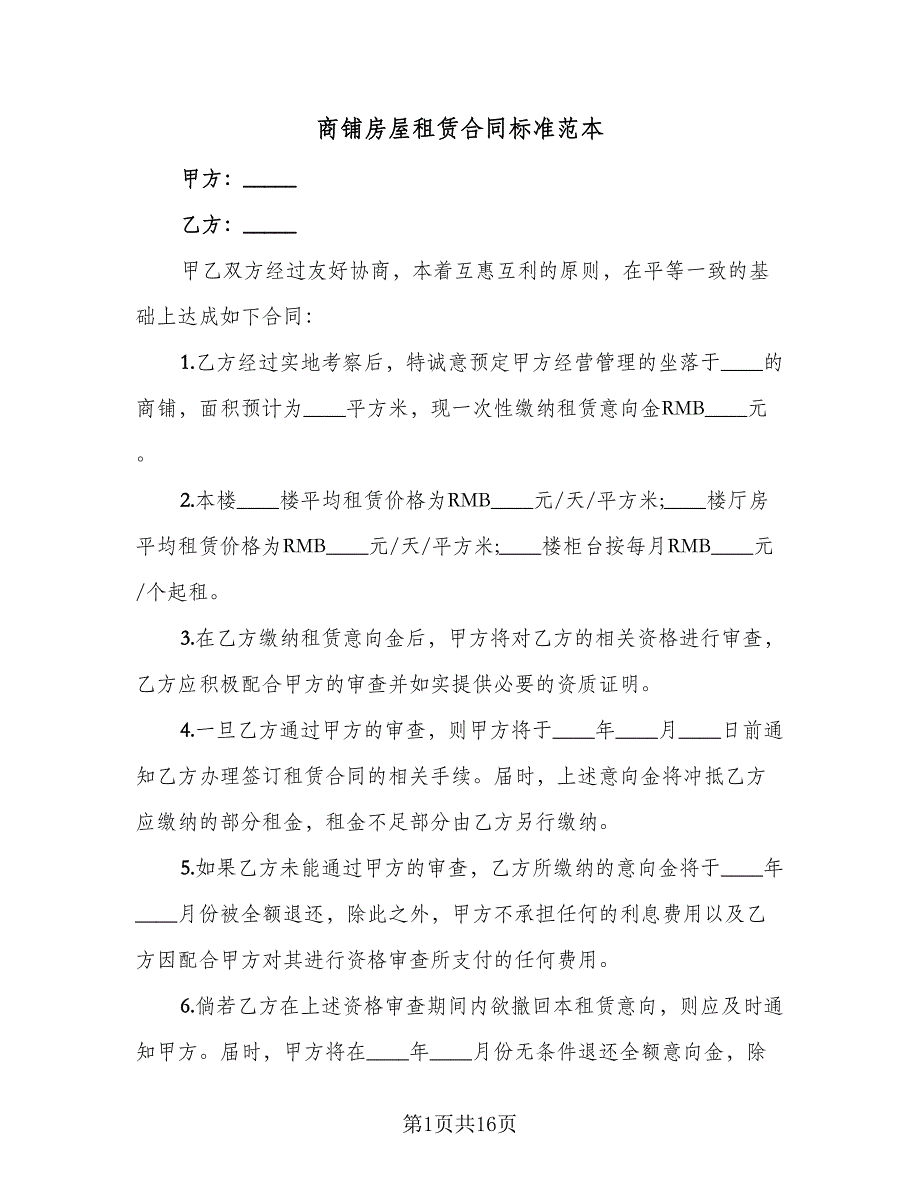 商铺房屋租赁合同标准范本
甲方：_____
乙方：_____
甲乙双方经过友好协商，本着互惠互利的原则，在平等一致的基
础上达成如下合同：
1.乙方经过实地考察后，特诚意预定甲方经营管理的坐落于____的
商铺，面积预计为____平方米，现一次性缴纳租赁意向金RMB____元
。
2.本楼____楼平均租赁价格为RMB____元/天/平方米;____楼厅房
平均租赁价格为RMB____元/天/平方米;____楼柜台按每月RMB____元
/个起租。
3.在乙方缴纳租赁意向金后，甲方将对乙方的相关资格进行审查，
乙方应积极配合甲方的审查并如实提供必要的资质证明。
4.一旦乙方通过甲方的审查，则甲方将于____年____月____日前通
知乙方办理签订租赁合同的相关手续。届时，上述意向金将冲抵乙方
应缴纳的部分租金，租金不足部分由乙方另行缴纳。
5.如果乙方未能通过甲方的审查，乙方所缴纳的意向金将于____年
____月份被全额退还，除此之外，甲方不承担任何的利息费用以及乙
方因配合甲方对其进行资格审查所支付的任何费用。
6.倘若乙方在上述资格审查期间内欲撤回本租赁意向，则应及时通
知甲方。届时，甲方将在____年____月份无条件退还全额意向金，除
第1页共16页